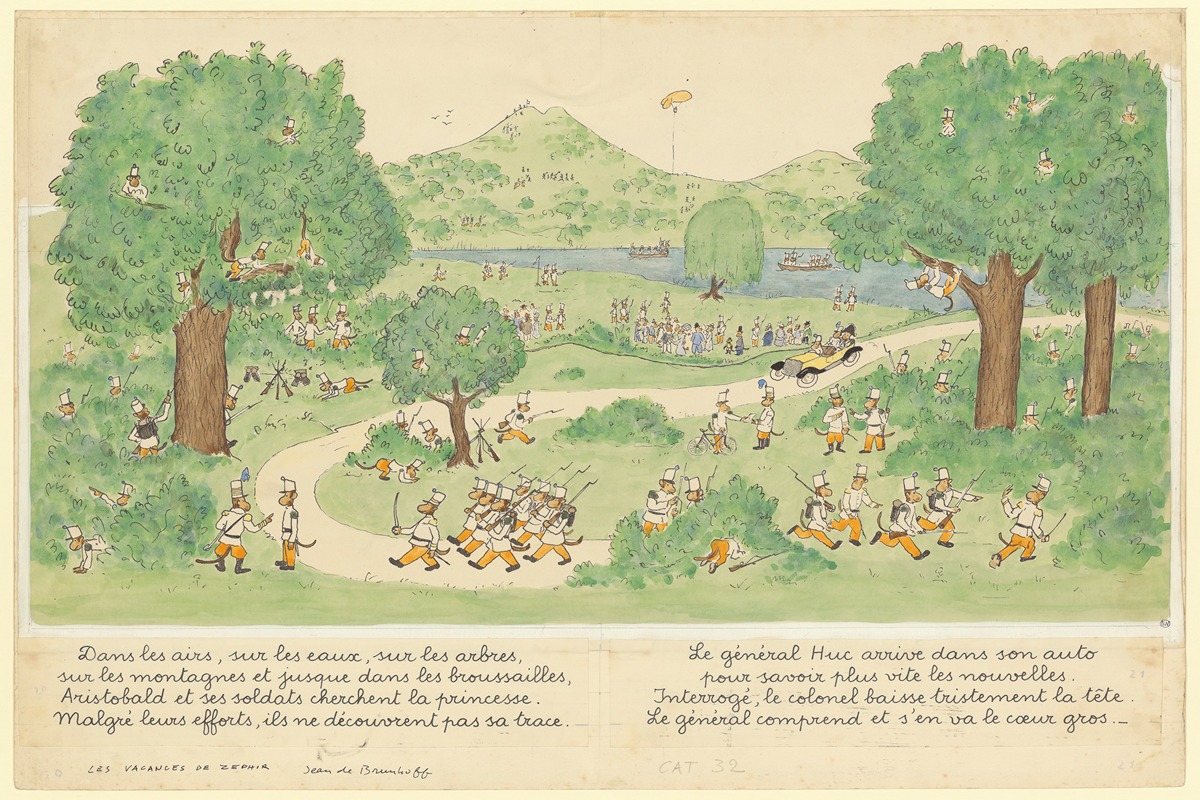 Dans les airs, sur les eaux, sur les arbres,
sur les montagnes et jusque dans les broussailles,
Aristobald et ses soldats cherchent la princesse.
Malgré leurs efforts, ils ne découvrent pas sa trace.
Le général Huc arrive dans son auto
pour savoir plus vite les nouvelles.
Interrogé, le colonel baisse tristement la tête.
Le général comprend et s'en va le cœur gros._
LES VACANCES DE ZEPHIR Jean de Brunhoff
CAT 32
21